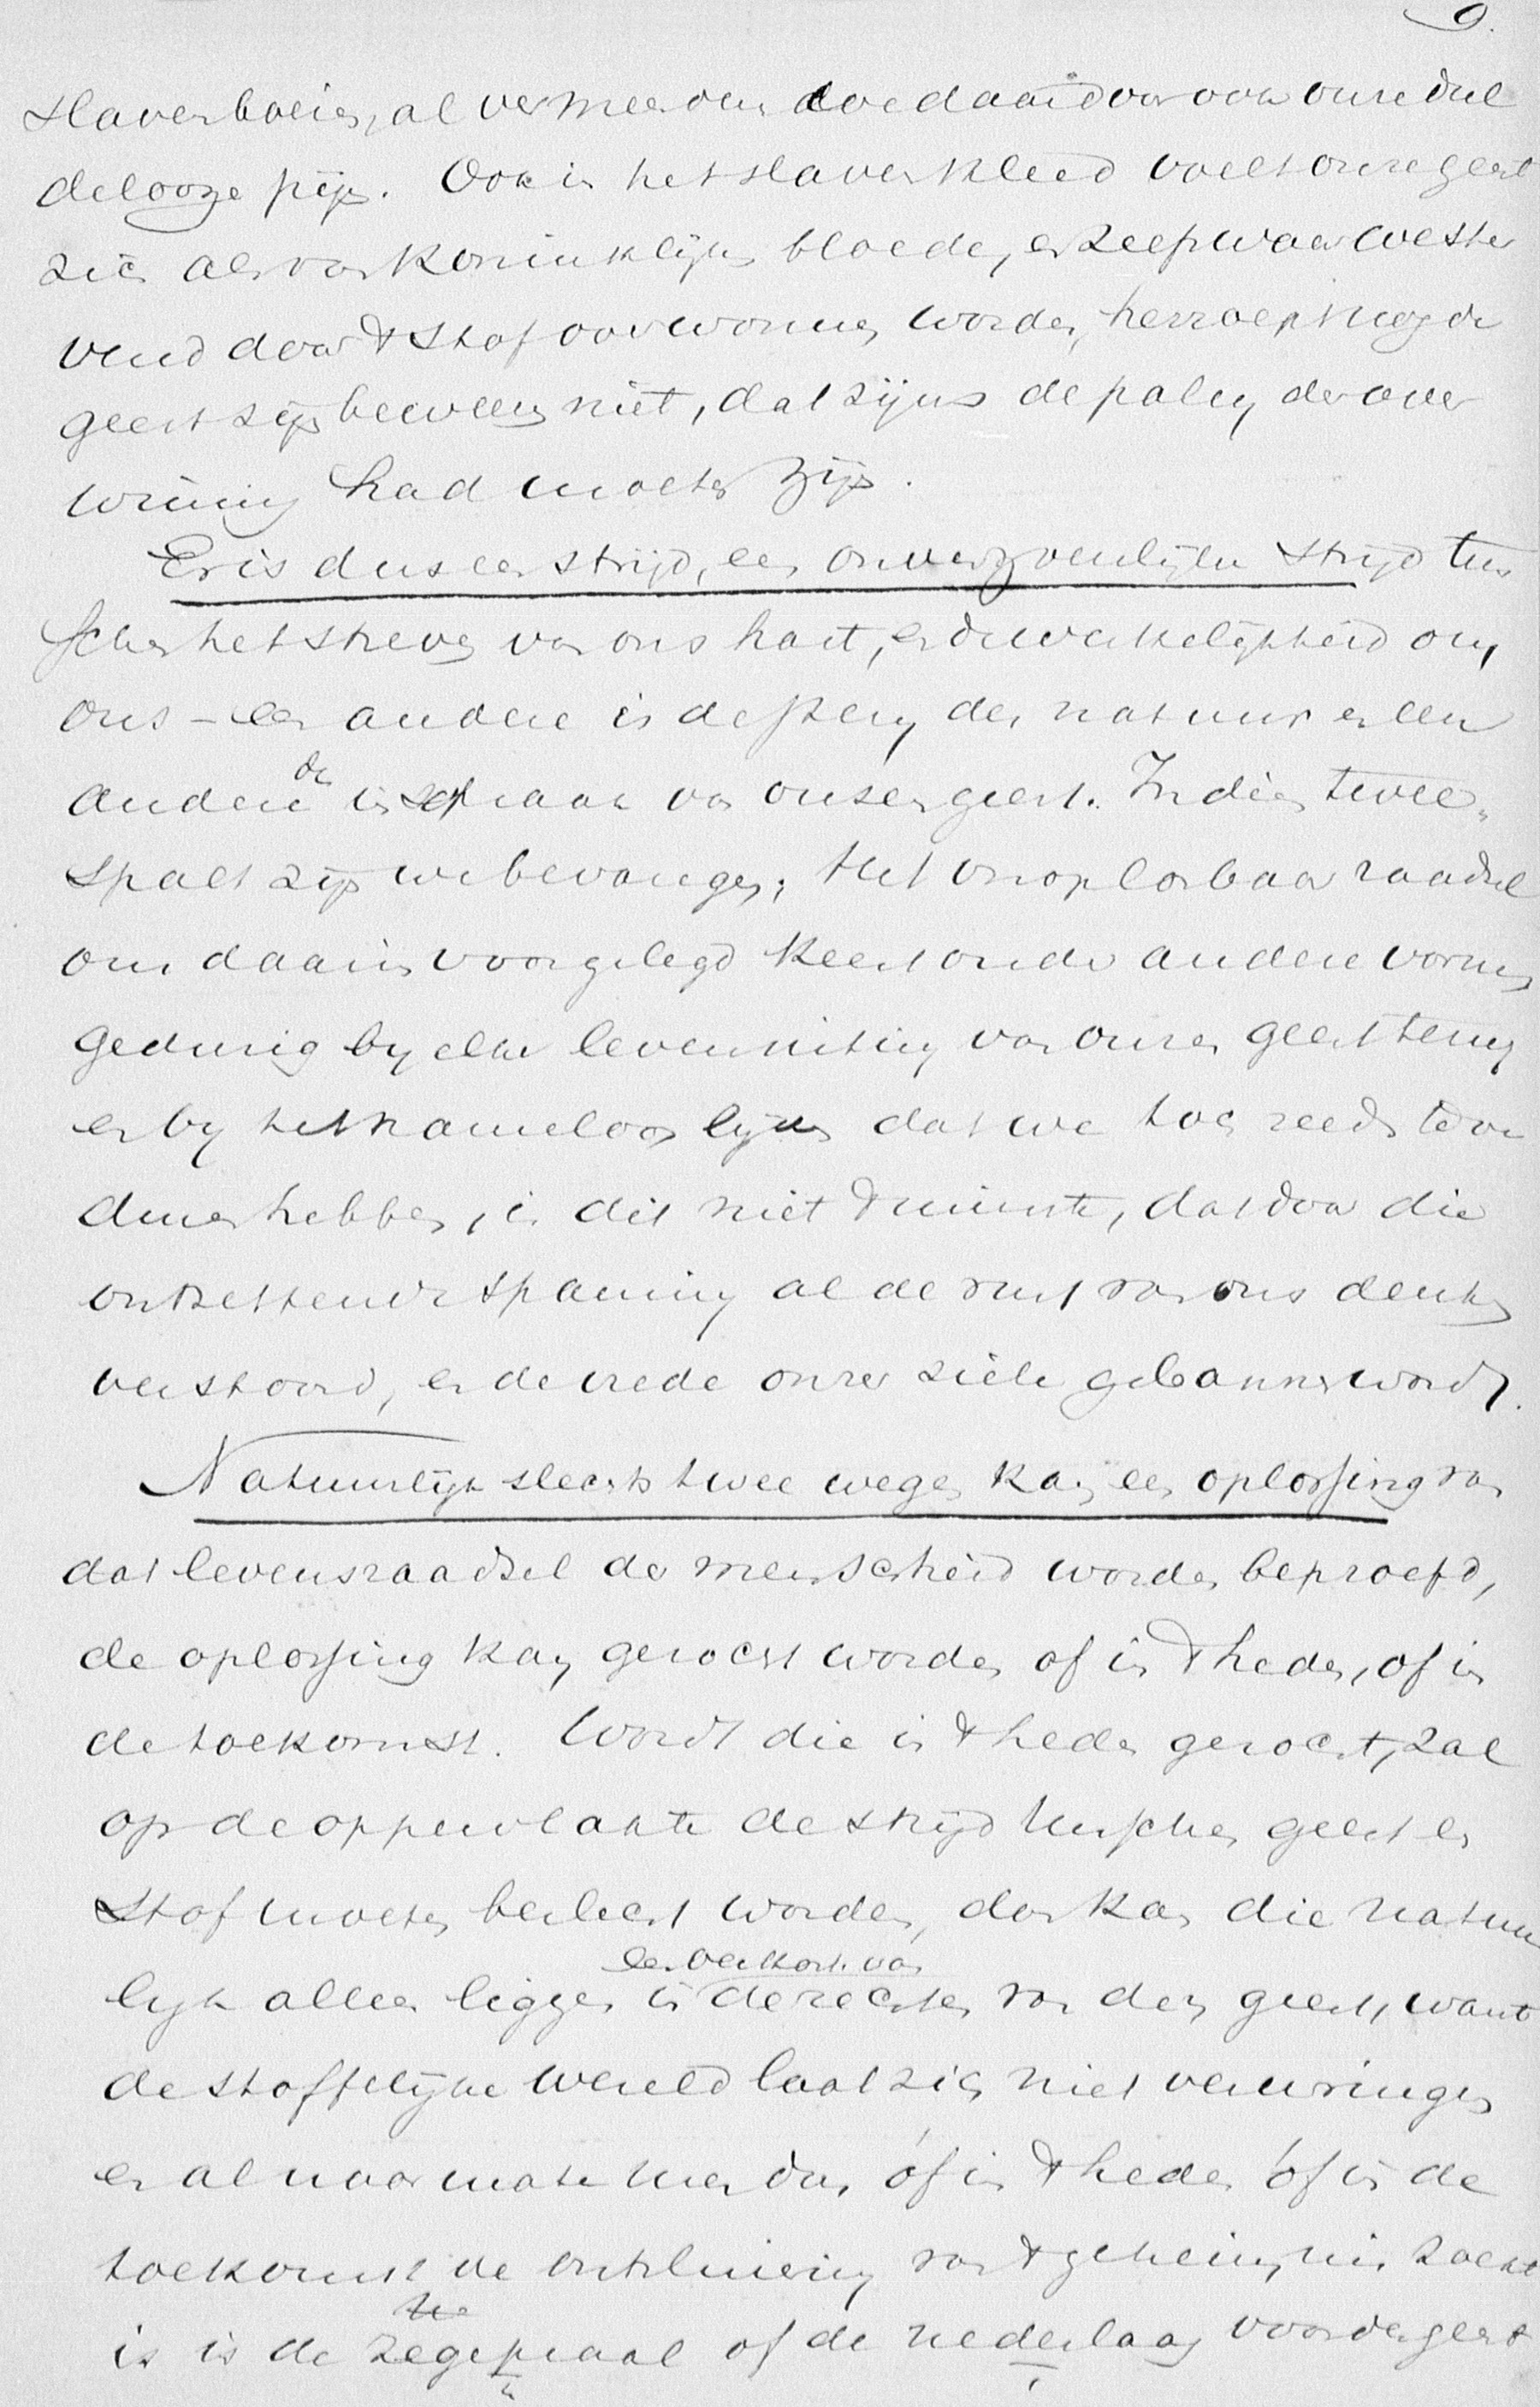 9.
slavenboeien, al vermeerderen we daardoor ook onze dul
delooze pijn. Ook in het slavenkleed voelt onze geest
zich als van koninklijken bloede, en zelfs waar we ster
vend door 't stof overwonnen worden, herroept nog de
geest zijn beweren niet, dat zijns de palm der over
winning had moeten zijn.
Er is dus een strijd, een onverzoenlijke strijd tus
schen het streven van ons hart, en de werkelijkheid om
ons – een andere is de stem der natuur en een
andere de spraak van onzen geest. In dien twee„
spalt zijn we bevangen; Het onoplosbaar raadsel
ons daarin voorgelegd keert onder andere vormen
gedurig by elke levensuiting van onzen geest terug
en by het nameloos lijden dat we toch reeds te ver
duren hebben, is dit niet 't minste, dat door die
ontzettende spanning al de rust van ons denken
verstoord, en de vrede onzer ziele gebannen wordt.
Natuurlijk slechts twee wegen kan een oplossing van
dat levensraadsel der menschheid worden beproefd,
de oplossing kan gezocht worden of in 't heden, of in
de toekomst. Wordt die in 't heden gezocht, zal
op de oppervlakte de strijd tusschen geest en
stof moeten beslecht worden, dan kan die natuur
lijk alleen liggen in een verkort. van de rechten van den geest, want
de stoffelijke wereld laat zich niet verwringen
en al naar mate men dus óf in 't heden óf in de
toekomst de ontsluiering van 't geheimnis zoekt
is in de zegepraal of de nederlaag voor den geest